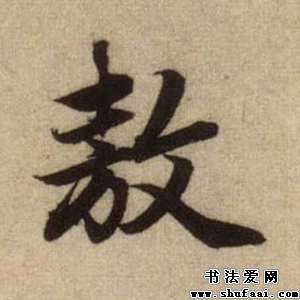 敖
书法爱网
www.shufaai.com